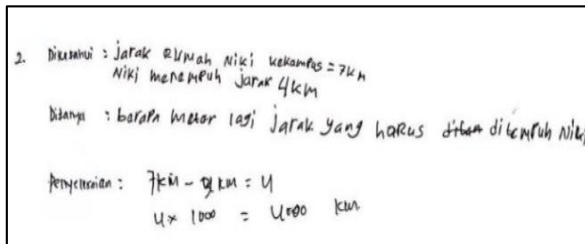 2. Diketahui : jarak rumah Niki kekampus = 7km
Niki menempuh jarak 4km
Ditanya : berapa meter lagi jarak yang harus ditempuh Niki
Penyelesaian : 7km - 4km = 4
4 x 1000 = 4000 km